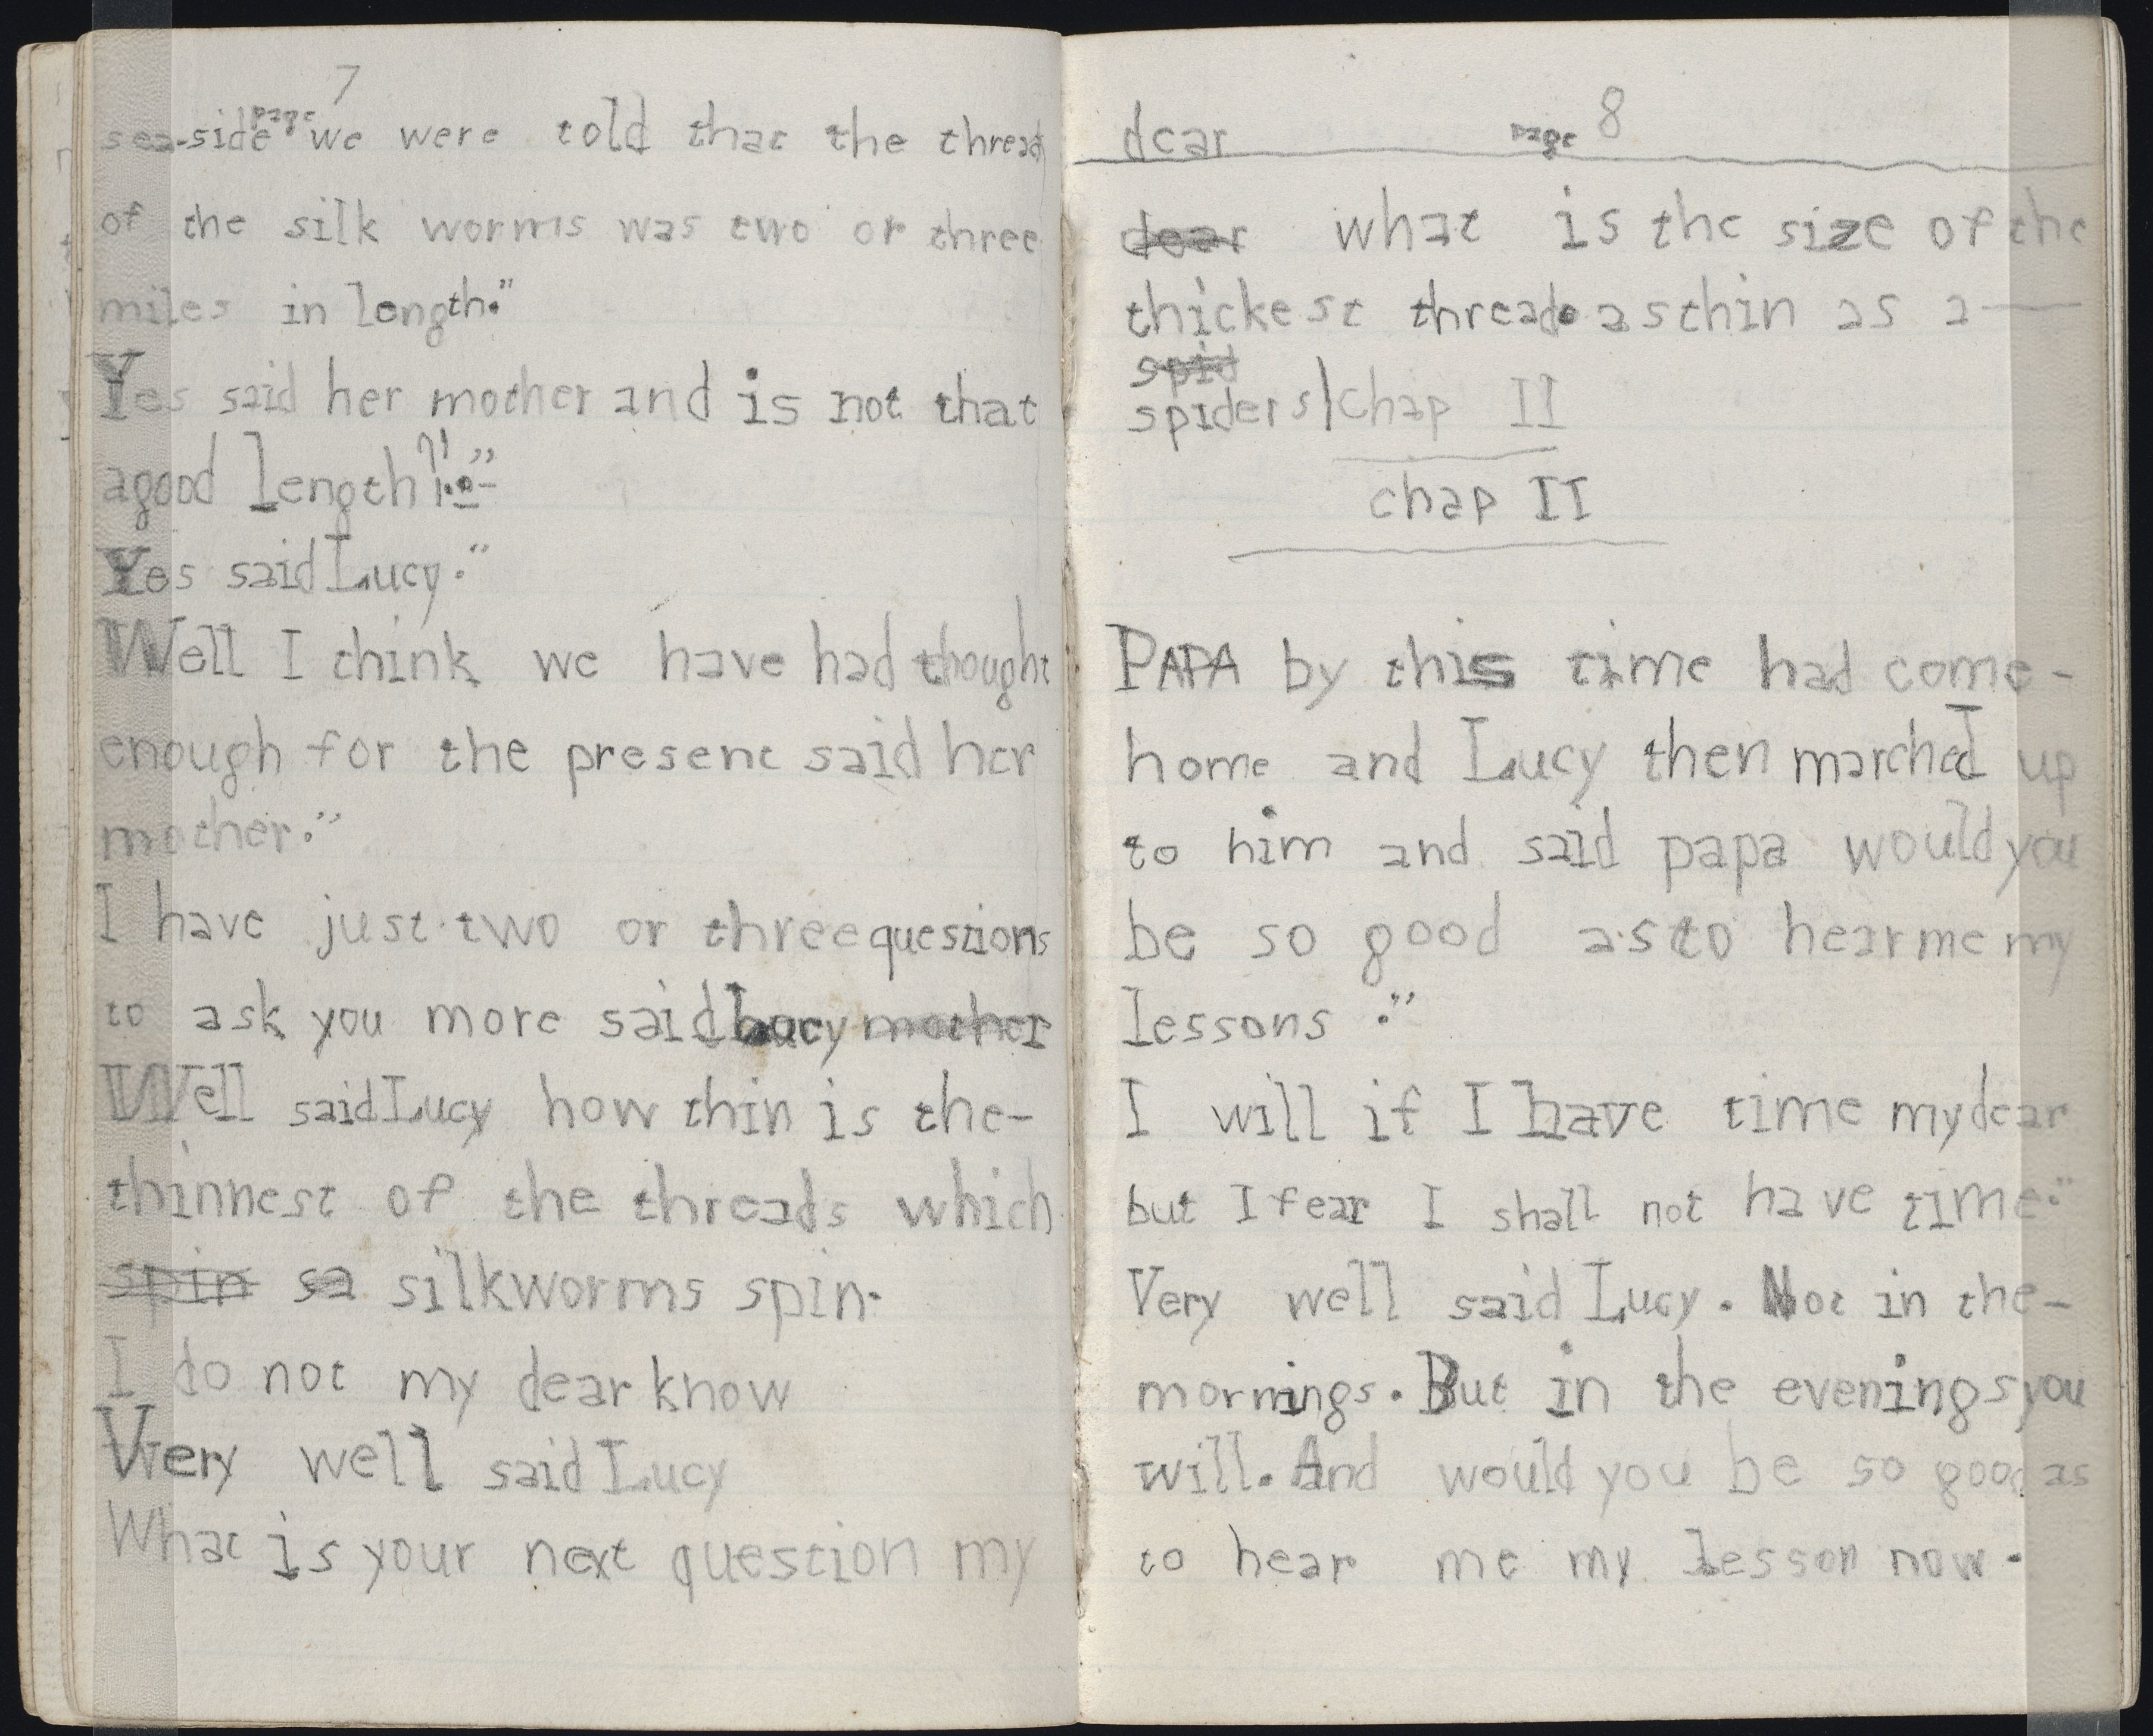 page 7
sea-side we were told that the thread
of the silk worms was two or three
miles in length."
Yes said her mother and is not that
agood length!"
Yes said Lucy."
Well I think we have had thought
enough for the present said her
mother."
I have just two or three questions
to ask you more said Lucy mother
Well said Lucy how thin is the-
thinnest of the threads which
spin sa silkworms spin.
I do not my dear know
Very well said Lucy
What is your next question my
page 8
dear
dear what is the size of the
thickest thread. as thin as a—
spid
spiders/chap II
chap II
PAPA by this time had come-
home and Lucy then marched up
to him and said papa would you
be so good as to hear me my
lessons."
I will if I have time my dear
but I fear I shall not have time."
Very well said Lucy. Not in the-
mornings. But in the evenings you
will. And would you be so good as
to hear me my lesson now.